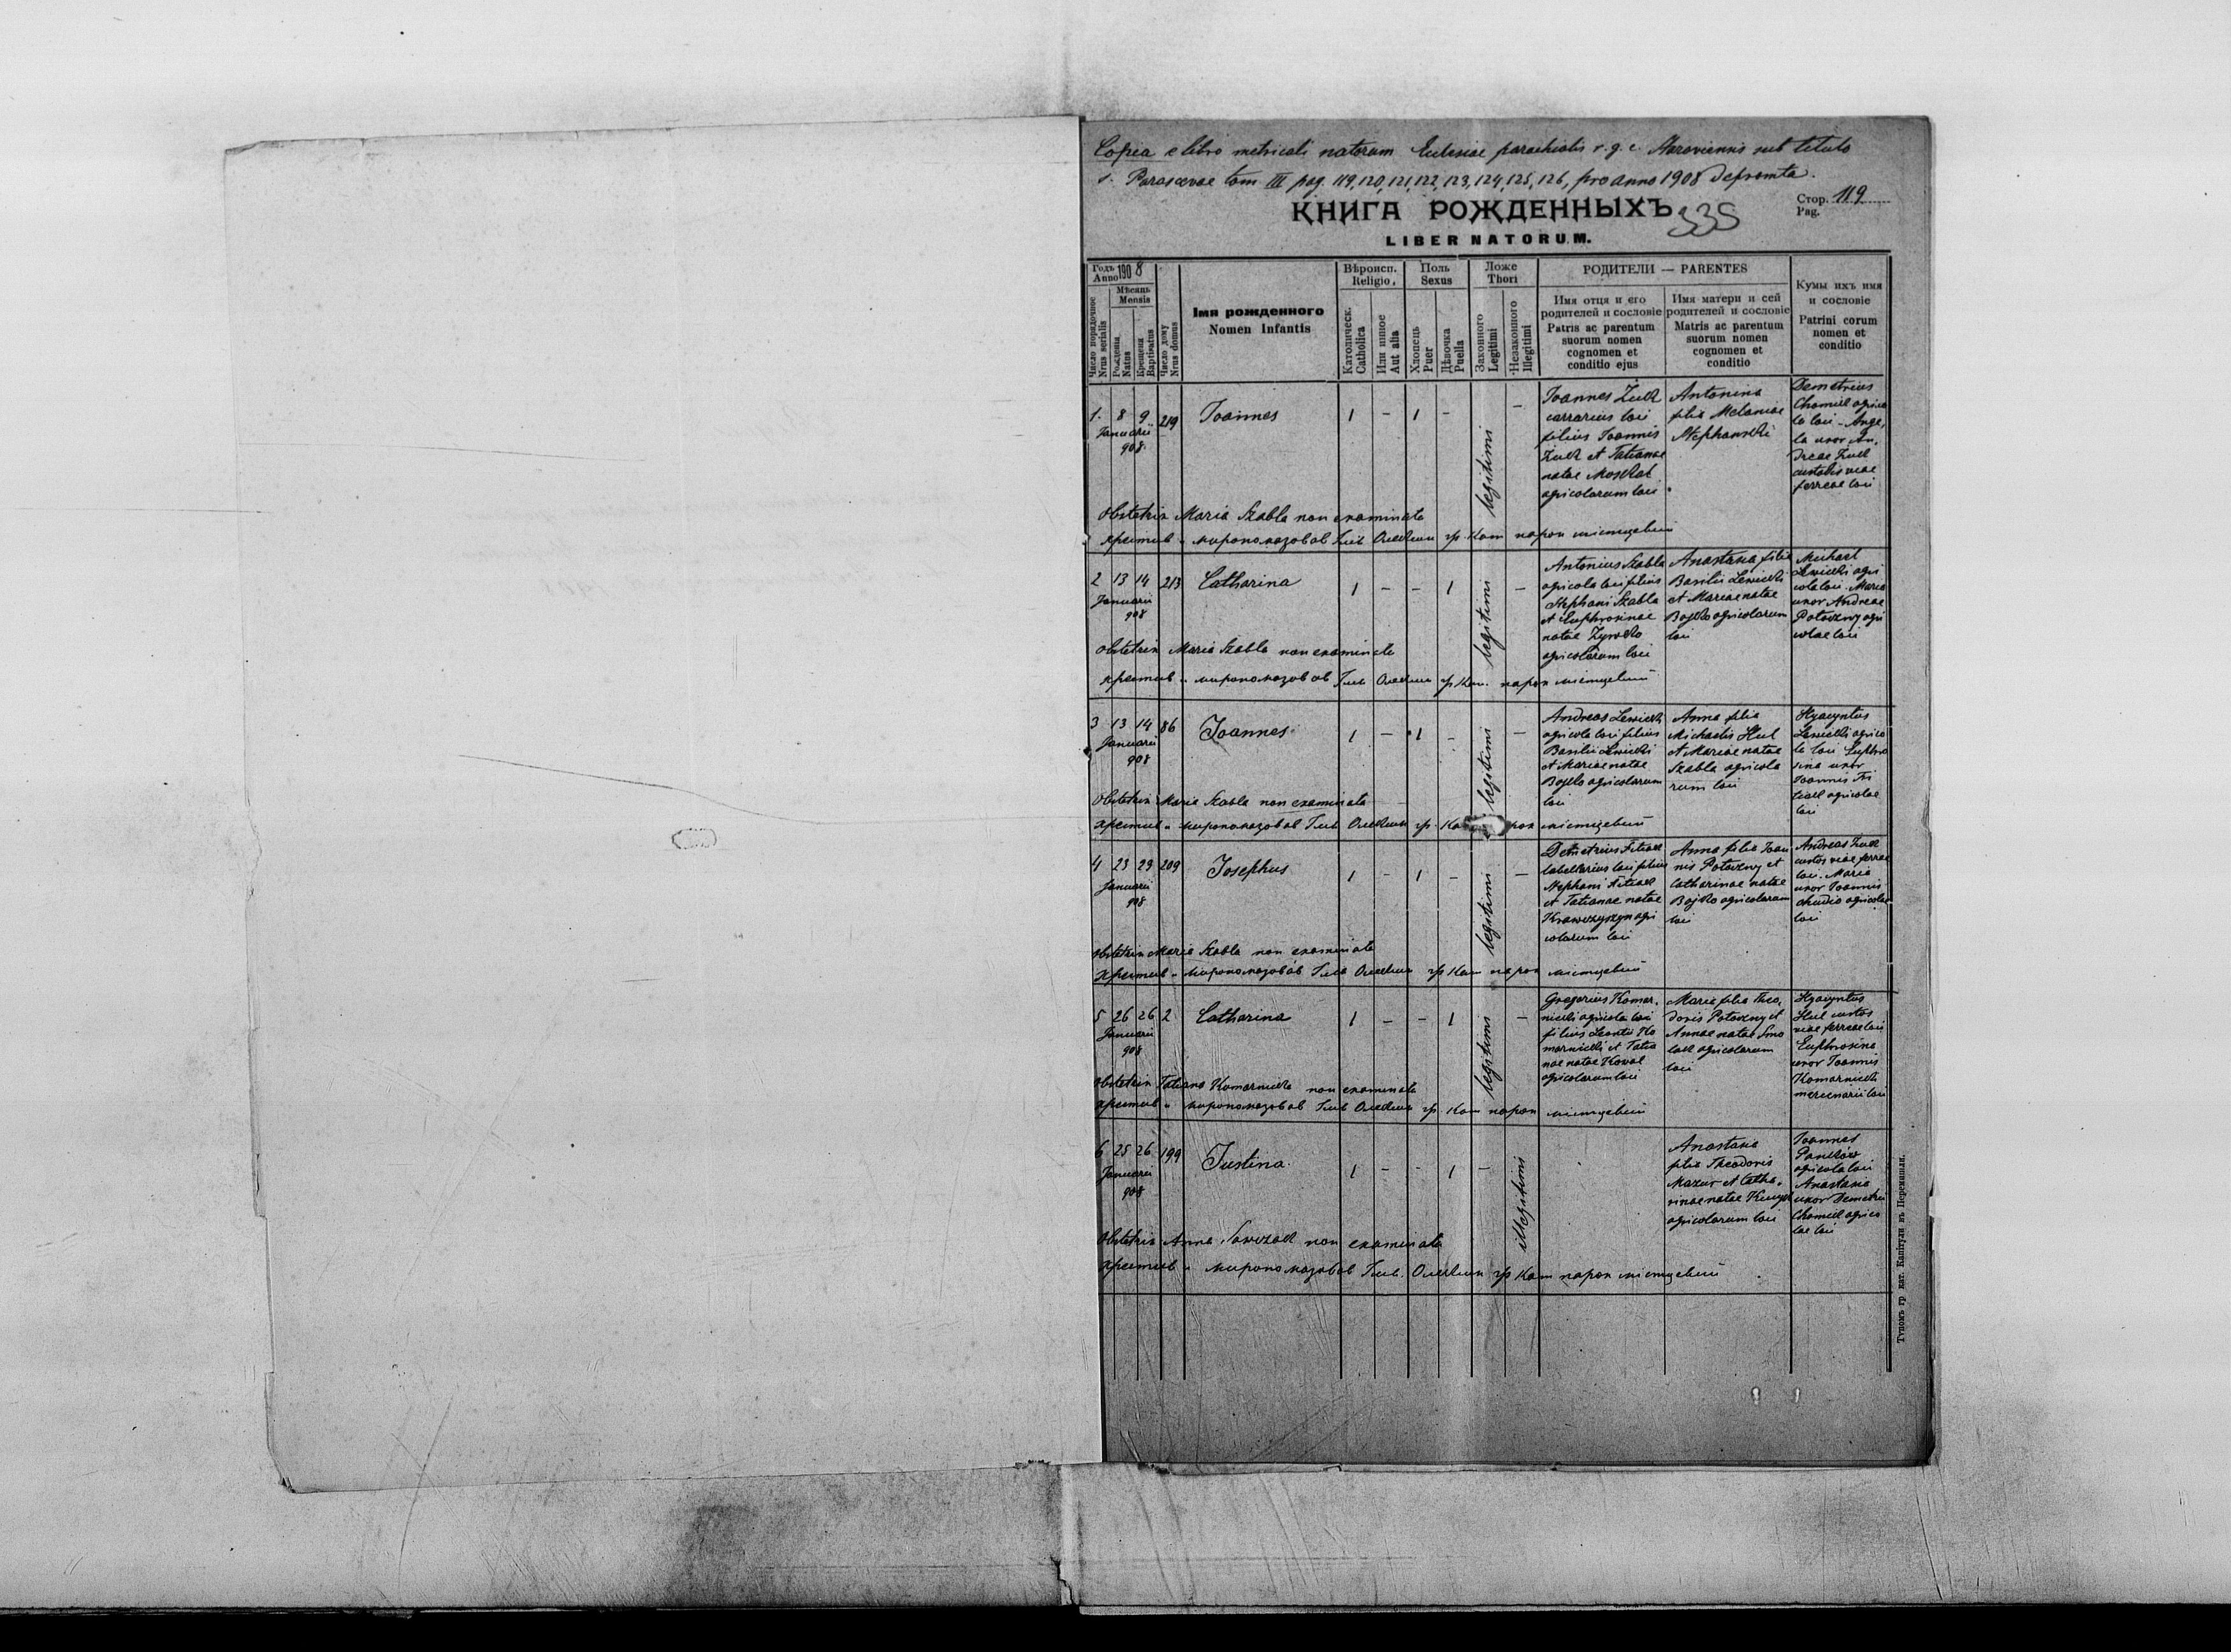 Copia e libro metricali natorum Eclesiae parochialis r.g.c. sub titulo
s. Parascevae tom III pag. 119, 120, 121, 122, 123, 124, 125, 126, pro anno 1908 depromta.
Стор. 119
Pag.
КНИГА РОЖДЕННЫХЪ 335
LIBER NATORUM.
Годъ 1908
Anno
Мѣсяць
Mensis
Число порядочне
Nrus serialis
Рожденъ
Natus
Крещенъ
Baptisatus
Число дому
Nrus domus
Імя рожденного
Nomen Infantis
Вѣроисп.
Religio.
Католическ.
Catholica
Или инное
Aut alia
Поль
Sexus
Хлопець
Puer
Дѣвочка
Puella
Ложе
Thori
Законного
Legitimi
Незаконного
Illegitimi
РОДИТЕЛИ — PARENTES
Имя отця и его
родителей и сословіе
Patris ac parentum
suorum nomen
cognomen et
conditio ejus
Имя матери и сей
родителей и сословіе
Matris ac parentum
suorum nomen
cognomen et
conditio
Кумы ихъ имя
и сословіе
Patrini eorum
nomen et
conditio
1. 8 9 219 Joannes 1 – 1 – legitimi –
Januarii
908
Joannes Żuk
carrarius loci
filius Joannis
Żuk et Tatianae
natae Moskal
agricolarum loci
Antonina
filia Melaniae
Stephanski
Demetrius
Chomik agrico
la loci - Ange,
la uxor An,
dreae Żuk
custodis viae
ferreae loci
Obstetrix Maria Szabla non examinata
крестив и миропомазовав гр. Кат парох місцевий
2 13 14 213 Catharina 1 – – 1 legitimi –
Januarii
908
Antonius Szabla
agricola loci filius
Stephani Szabla
et Euphrosinae
natae Zywko
agricolarum loci
Anastasia filia
Basilii Lewicki
et Mariae natae
Bojko agricolarum
loci
Michael
Lewicki agri
cola loci. Maria
uxor Andreae
Potoczny agri
colae loci
Obstetrix Maria Szabla non examinata
крестив и миропомазовав гр Кат. парох місцевий
3 13 14 86 Joannes 1 – 1 – legitimi –
Januarii
908
Andreas Lewicki
agricola loci filius
Basilii Lewicki
et Mariae natae
Bojko agricolarum
loci
Anna filia
Michaelis Huk
et Mariae natae
Szabla agricola
rum loci
Hyacyntus
Lewicki agrico
la loci Euphro
sina uxor
Joannis Fi
tiak agricolae
loci
Obstetrix Maria Szabla non examinata
крестив и миропомазовав гр. місцевий
4 23 23 209 Josephus 1 – 1 – legitimi –
Januarii
908
Demetrius Fitiak
tabellarius loci filius
Stephani Fitiak
et Tatianae natae
Krawczyszyn agri
colarum loci
Anna filia Joan
nis Potoczny et
Catharinae natae
Bojko agricolarum
loci
Andreas Żuk
custos viae ferreae
loci. Maria
uxor Joannis
agricolae
loci
Obstetrix Maria Szabla non examinata
крестив и миропомазовав гр Кат парох місцевий
5 26 26 2 Catharina 1 – – 1 legitimi –
Januarii
908
Gregorius Komar,
nicki agricola loci
filius Leontii Ko
marnicki et Tatia
nae natae Kowal
agricolarum loci
Maria filia Theo,
doris Potoczny et
Annae natae Smo
lak agricolarum
loci
Hyacyntus
Huk custos
viae ferreae loci
Euphrosina
uxor Joannis
Komarnicki
mercenarii loci
Obstetrix Tatiana Komarnicka non examinata
крестив и миропомазовав гр. Кат парох місцевий
6 25 26 199 Justina. 1 – – 1 – illegitimi
Januarii
908
Anastasia
filia Theodoris
Mazur et Catha,
rinae natae
agricolarum loci
Joannes
Panków
agricola loci
Anastasia
uxor Demetrii
Chomik agrico
lae loci
Obstetrix Anna non examinata
крестив и миропомазовав гр Кат парох місцевий
Тупомъ гр. кат. Капітули въ Перемышли.